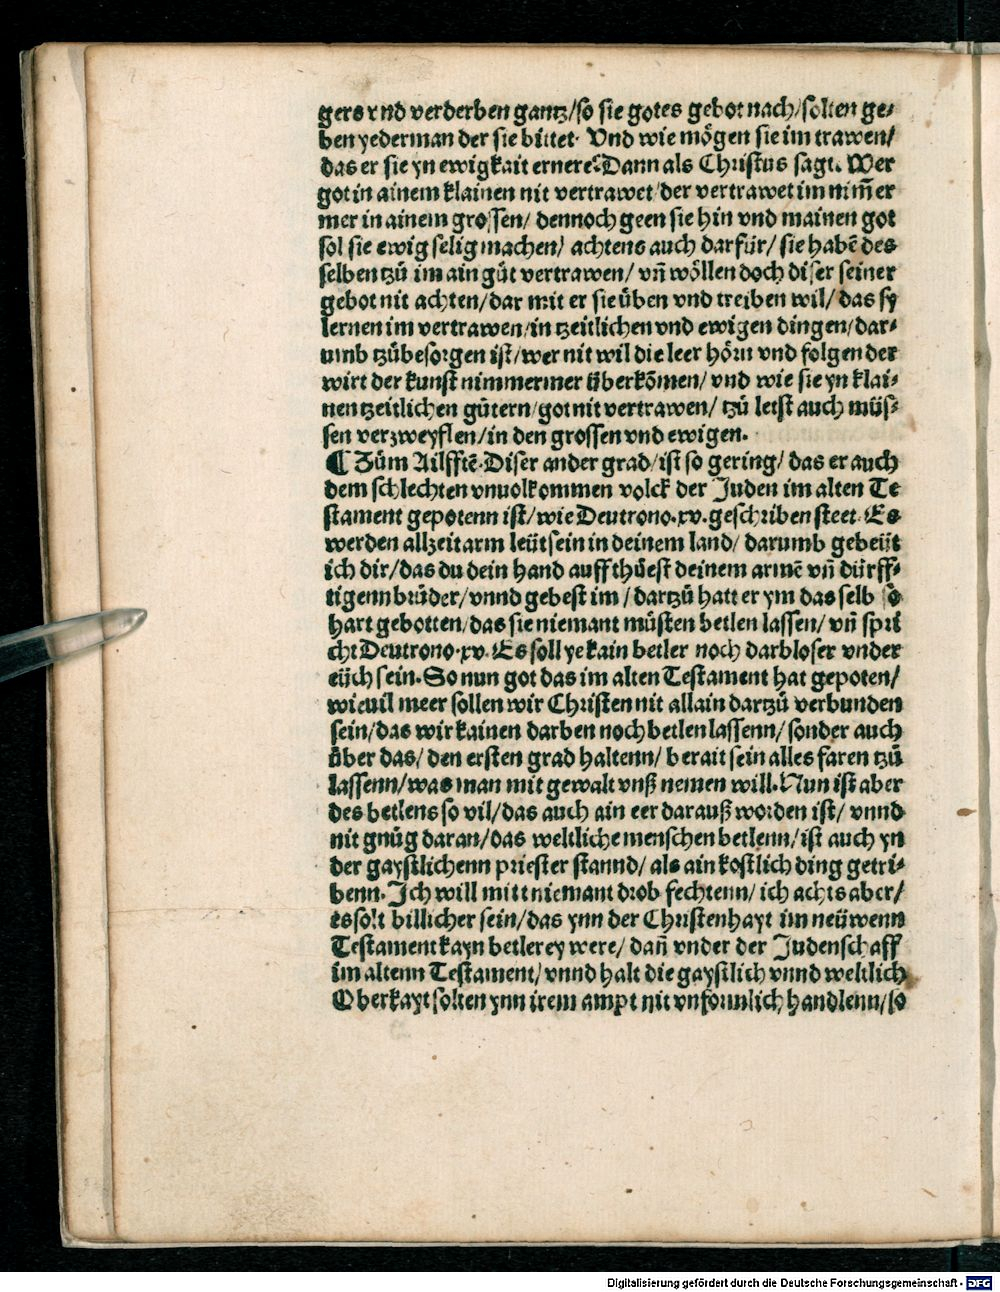 gers vnd verderben gantz/so sie gotes gebot nach/solten ge⸗
ben yederman der sie bittet. Vnd wie mögen sie im trawen/
das er sie yn ewigkait ernere? Dann als Christus sagt. Wer
got in ainem klainen nit vertrawet/der vertrawet im nim̃er
mer in ainem grossen/ dennoch geen sie hin vnd mainen got
sol sie ewig selig machen/ achtens auch darfür/ sie habē des
selben tzů im ain gůt vertrawen/ vñ wöllen doch diser seiner
gebot nit achten/dar mit er sie üben vnd treiben wil/ das sy
lernen im vertrawen/in tzeitlichen vnd ewigen dingen/dar⸗
umb tzůbesorgen ist/wer nit wil die leer hörn vnd folgen der
wirt der kunst nimmermer überkōmen/ vnd wie sie yn klai⸗
nen tzeitlichen gütern/got nit vertrawen/ tzů letst auch müs⸗
sen verzweyflen/in den grossen vnd ewigen.
¶ Zům Ailfftē. Diser ander grad/ist so gering/ das er auch
dem schlechten vnuolkommen volck der Juden im alten Te
stament gepotenn ist/wie Deutrono.xv.geschriben steet. Es
werden allzeit arm leüt sein in deinem land/ darumb gebeüt
ich dir/das du dein hand auff thüest deinem armē vñ dürff⸗
tigenn brüder/vnnd gebest im/ dartzů hatt er ym das selb so
hart gebotten/das sie niemant müsten betlen lassen/ vñ spri
cht Deutrono.xv. Es soll ye kain betler noch darbloser vnder
eüch sein. So nun got das im alten Testament hat gepoten/
wieuil meer sollen wir Christen nit allain dartzů verbunden
sein/das wir kainen darben noch betlen lassenn/sonder auch
über das/ den ersten grad haltenn/ berait sein alles faren tzů
lassenn/was man mit gewalt vnß nemen will. Nun ist aber
des betlens so vil/das auch ain eer darauß worden ist/ vnnd
nit gnůg daran/das weltliche menschen betlenn/ist auch yn
der gaystlichenn priester stannd/ als ain kostlich ding getri⸗
benn. Ich will mitt niemant drob fechtenn/ ich achts aber/
es solt billicher sein/das ynn der Christenhayt im neüwenn
Testament kayn betlerey were/ dañ vnder der Judenschaff
im altenn Testament/ vnnd halt die gaystlich vnnd weltlich
Oberkayt solten ynn irem ampt nit vnformlich handlenn/so
Digitalisierung gefördert durch die Deutsche Forschungsgemeinschaft - DFG